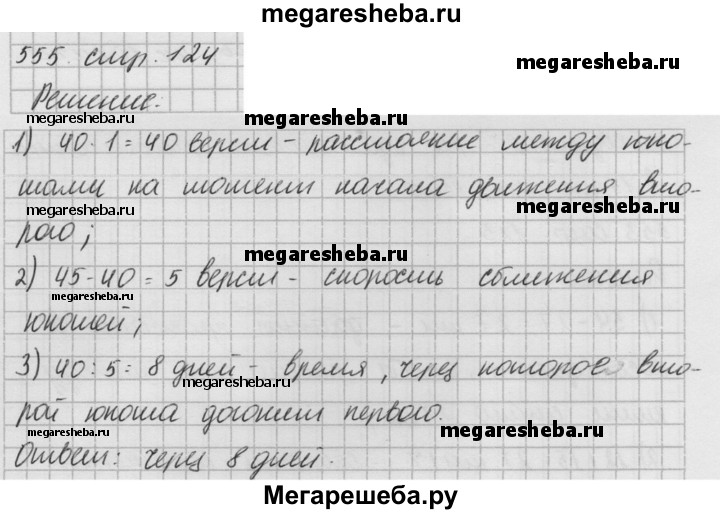 megaresheba.ru
555. стр. 124
megaresheba.ru
Решение.
megaresheba.ru
1) 40·1=40 верст - расстояние между юно-
шами на момент начала движения вто-
megaresheba.ru
megaresheba.ru
рого;
megaresheba.ru
2) 45-40=5 верст - скорость сближения
megaresheba.ru
юношей;
megaresheba.ru
3) 40:5=8 дней - время, через которое вто-
megaresheba.ru
рой юноша догонит первого.
megaresheba.ru
megaresheba.ru
Ответ: через 8 дней.
Мегарешеба.ру